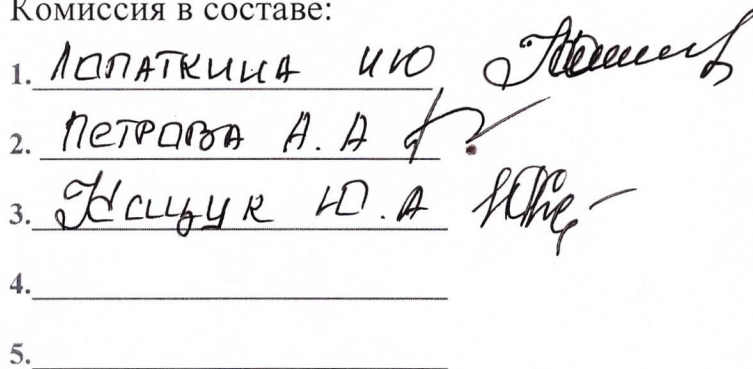 Комиссия в составе:
1. Лопаткина ИЮ
2. Петрова А. А
3. Ю. А
4.
5.